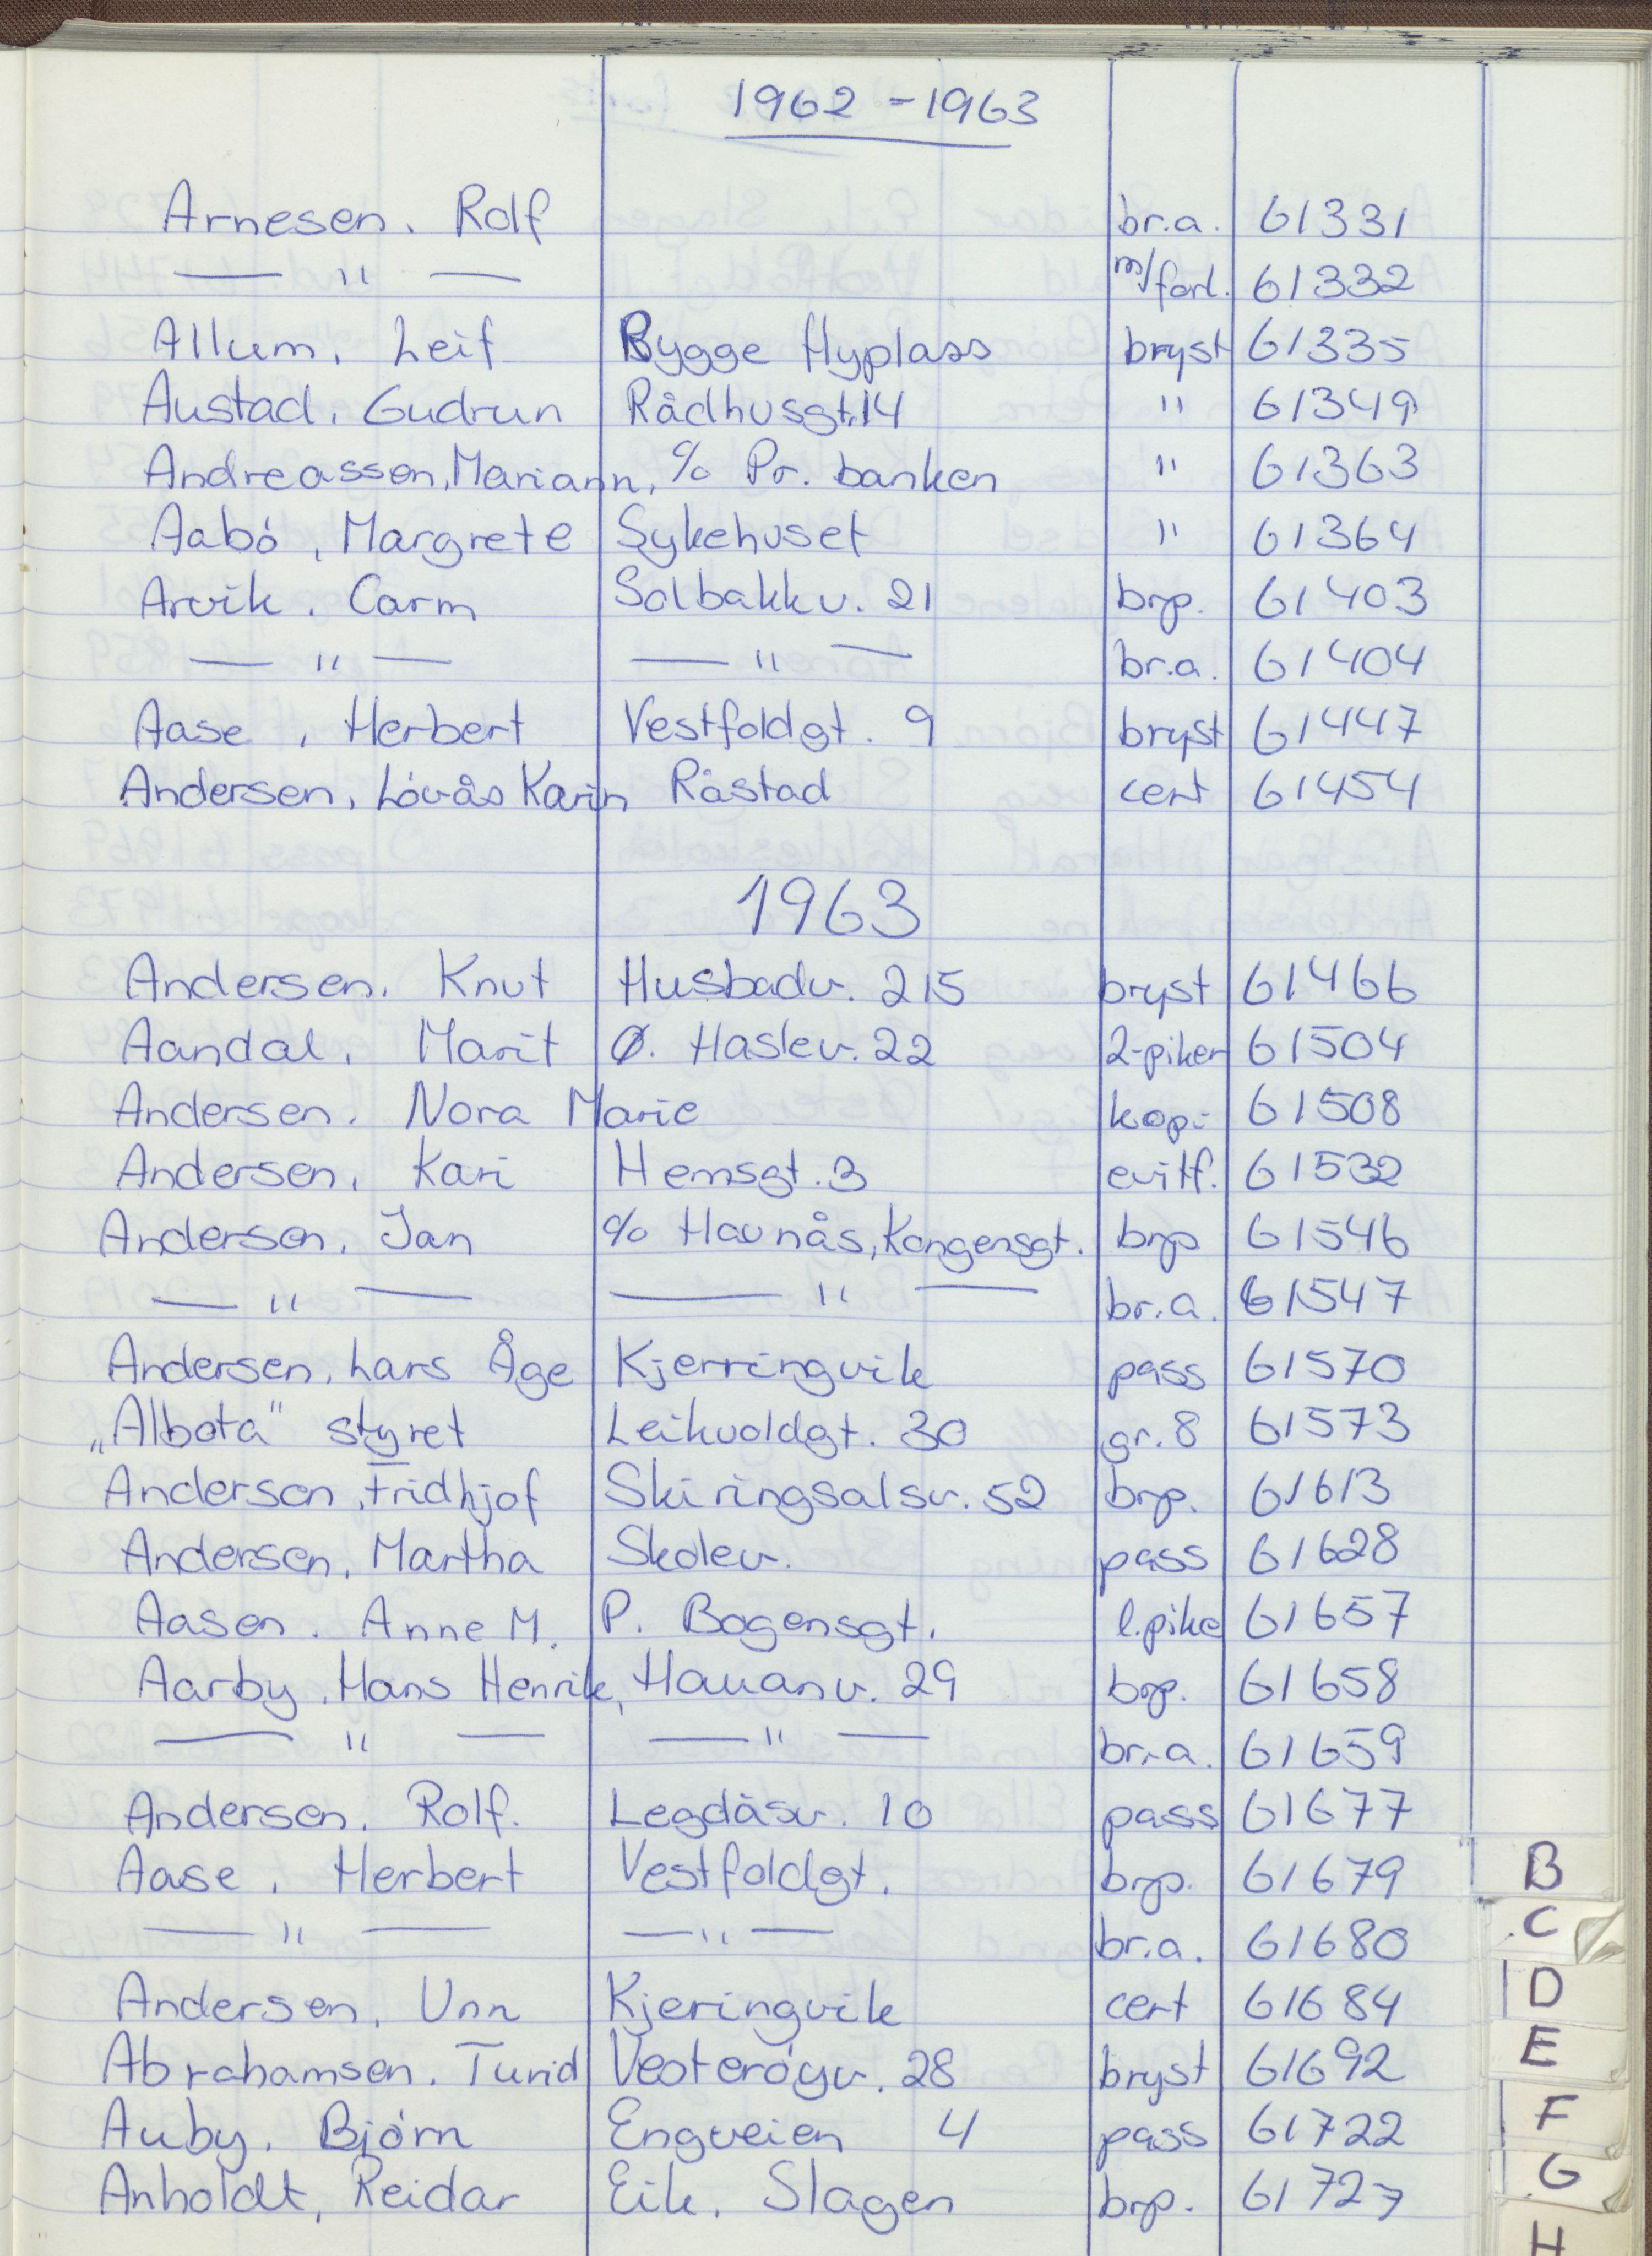 1962 - 1963
Arnesen, Rolf br.a. 61331
— " — m/forl. 61332
Allum, Leif Bygge Hyplass bryst 61335
Austad, Gudrun Rådhusgt. 14 " 61349
Andreassen, Mariann, % Pr. banken " 61363
Aabó, Margrete Sykehuset " 61364
Arvik, Carm Solbakkv. 21 brp. 61403
— " — — " — br.a. 61404
Aase, Herbert Vestfoldgt. 9 bryst 61447
Andersen, Lóvås Karin Råstad cert 61454
1963
Andersen, Knut Husbadv. 215 bryst 61466
Aandal, Marit Ø. Haslev. 22 2-piker 61504
Andersen, Nora Marie kopi 61508
Andersen, Kari Hemsgt. 3 evitf. 61532
Andersen, Jan % Havnås, Kongensgt. brp 61546
— " — — " — br.a. 61547
Andersen, Lars Åge Kjerringvik pass 61570
„Albota" styret Leikvoldgt. 30 gr. 8 61573
Andersen, Fridhjof Skiringsalsv. 52 brp. 61613
Andersen, Martha Skolev. pass 61628
Aasen, Anne M. P. Bogensgt. l.pike 61657
Aarby, Hans Henrik, Hauanv. 29 brp. 61658
— " — — " — br.a. 61659
Andersen, Rolf. Legdåsv. 10 pass 61677
Aase, Herbert Vestfoldgt. brp. 61679
— " — — " — br.a. 61680
Andersen, Unn Kjeringvik cert 61684
Abrahamsen, Turid Vesterøyv. 28 bryst 61692
Auby, Bjórn Engveien 4 pass 61722
Anholdt, Reidar Eik, Slagen brp. 61727
B
C
D
E
F
G
H